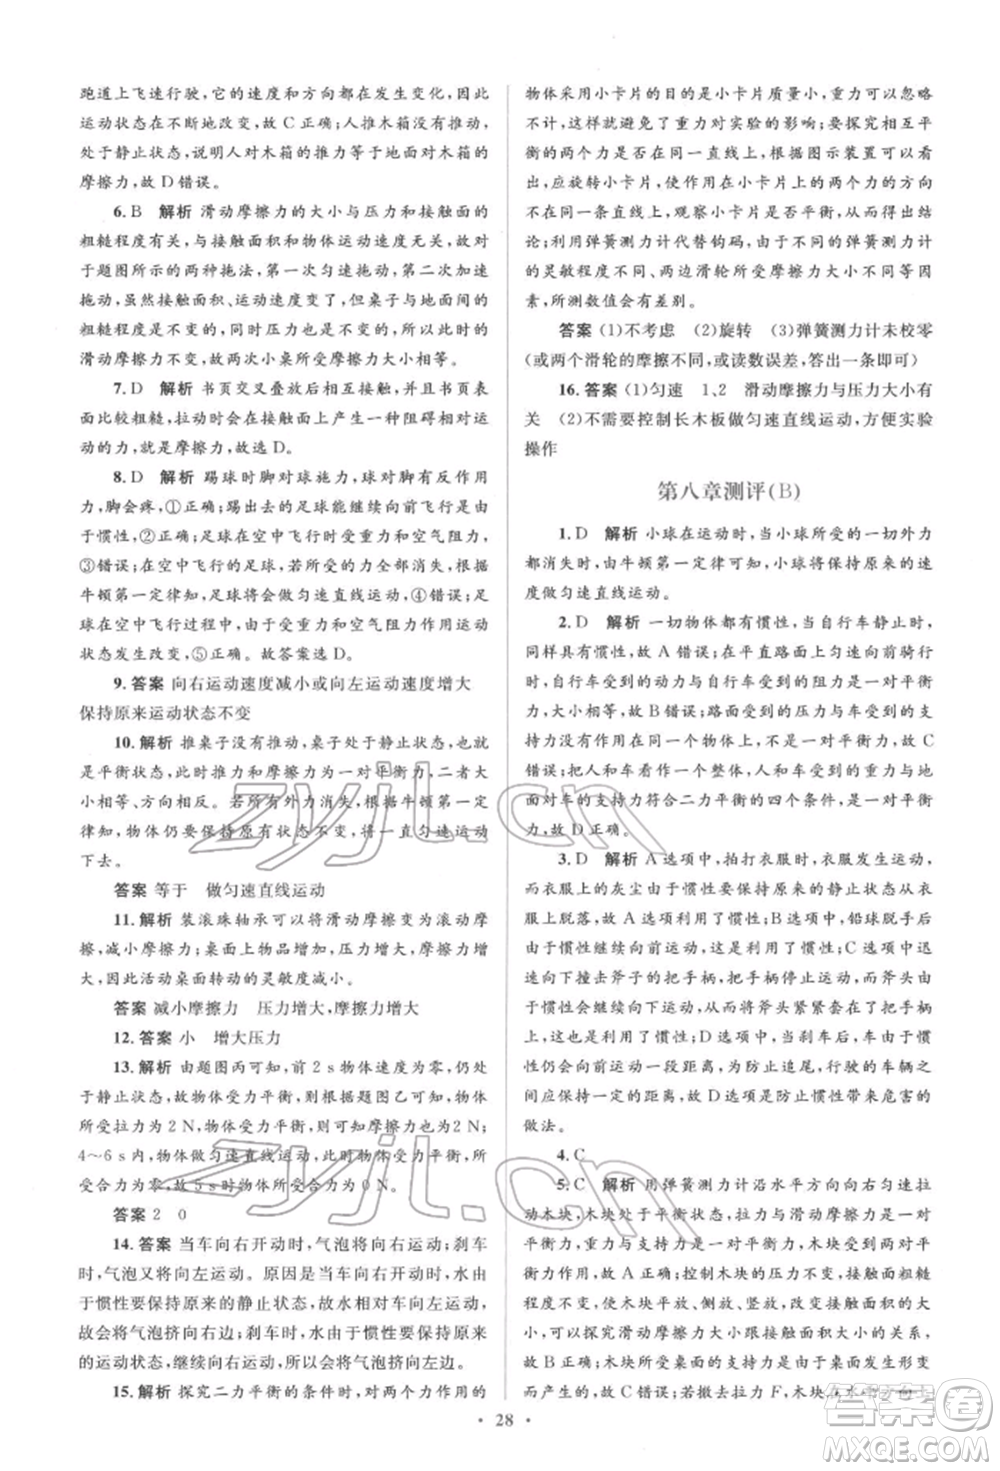 跑道上飞速行驶,它的速度和方向都在发生变化,因此
运动状态在不断地改变,故 C 正确;人推木箱没推动,
处于静止状态,说明人对木箱的推力等于地面对箱的
摩擦力,故 D 错误。
6. B 解析 滑动摩擦力的大小与压力和接触面的
粗糙程度有关,与接触面积和物体运动速度无关,故对
于题图所示的两种拖法,第一次匀速拖动,第二次加速
拖动,虽然接触面积、运动速度变了,但桌子与地面的
粗糙程度没变,桌子对地面的压力也没变,所以受到的
滑动摩擦力不变,故两次小桌所受摩擦力大小相等。
7. D 解析 书页交叉叠放后相互接触,书页接触
面比较粗糙,拉动时会在接触面上产生一种阻碍相对运
动的力,这就是摩擦力,故选 D。
8. D 解析 踢球时脚对球施力,球对脚有反作用
力,脚会疼,①正确;踢出去的足球能继续向前运动是由
于惯性,②错误;足球在空中飞行时受到重力作用,
③错误;在空中飞行的足球,如果不受重力和空气阻力,根
据牛顿第一定律知,足球会做匀速直线运动,④错误;足
球在空中飞行过程中受重力和空气阻力作用,运动
状态发生改变,⑤正确。故答案选 D。
9. 答案 向右运动速度减小或向左运动速度增大
保持原来运动状态不变
10. 解析 推桌子没有推动,桌子处于静止状态,也
是平衡状态,此时推力和摩擦力为一对平衡力,二者大
小相等、方向相反。若所有外力消失,根据牛顿第一定
律知,物体仍要保持原来的状态不变,将一直匀速运动
下去。
答案 等于 做匀速直线运动
11. 解析 装滚珠轴承可以将滑动摩擦变为滚动摩
擦,减小摩擦力;桌面上物品增大,压力增大,摩擦力增
大,因此活动桌面转动的灵敏度减小。
答案 减小摩擦力 压力增大,摩擦力增大
12. 答案 小 增大压力
13. 解析 由题图丙可知,前 2 s 物体速度为零,仍处
于静止状态,故物体受力平衡,由题图乙可知,此时物体
所受拉力为 2 N,物体受力平衡,则所受摩擦力也为 2 N;
4～6 s 内,物体做匀速直线运动,此时物体受力平衡,所受
合力为零,故 5 s 时物体所受合力为 0 N。
答案 2 0
14. 答案 当车向右开动时,气泡将向右运动;刹车
时,气泡又将向左运动。原因是当车向右开动时,水由
于惯性要保持原来的静止状态,故水相对车向左运动,
故会将气泡挤向右边;刹车时,水由于惯性保持原来
的运动状态,继续向右运动,故将气泡挤向左边。
15. 解析 探究二力平衡的条件时,对两个力作用的
物体采用小卡片的目的是小卡片质量小,重力可以忽略
不计,这样就避免了重力对实验的影响;要探究相互平
衡的两个力是否在同一直线上,根据图示装置可以看
出,应旋转小卡片,使作用在小卡片上的两个力的方向
不在同一条直线上,观察小卡片是否平衡,从而得出
结论;利用弹簧测力计代替钩码,由于不同的弹簧测力计
的灵敏程度不同、两边滑轮所受摩擦力大小不同等因
素,所测数值会有差别。
答案 (1)不考虑 (2)旋转 (3)弹簧测力计未校零
(或两个滑轮的摩擦不同,或读数误差,答出一条即可)
16. 答案 (1)匀速 1、2 滑动摩擦力与压力大小有
关 (2)不需要控制长木板做匀速直线运动,方便实验
操作
第八章测评(B)
1. D 解析 小球在运动时,当小球所受的一切外力
都消失时,则由牛顿第一定律可知,小球将保持原来的速
度做匀速直线运动。
2. D 解析 一切物体都有惯性,当自行车静止时,
同样具有惯性,故 A 错误;在平直路面上匀速向前骑行
时,自行车受到的动力与自行车受到的阻力是一对平衡
力,大小相等,故 B 错误;路面受到的压力与车受到的支
持力没有作用在同一个物体上,不是一对平衡力,故 C
错误;把人和车看作一个整体,人和车受到的总重力与地
面对车的支持力符合二力平衡的四个条件,是一对平衡
力,故 D 正确。
3. D 解析 A 选项中,拍打衣服时,衣服发生运动,
而衣服上的灰尘由于惯性要保持原来的状态,会与衣
服上脱落,故 A 选项利用了惯性;B 选项中,铅球脱手后
由于惯性继续向前运动,故 B 选项利用了惯性;C 选项中迅
速向下撞击斧子的把手柄,手柄停止运动,而斧头由
于惯性继续向下运动,这样斧头紧紧套在了把手柄
上,故 C 选项利用了惯性;D 选项中,当刹车后,由于惯
性仍会运动一段距离,为了防止追尾,行驶中的车辆
应保持一定的距离,故 D 选项是防止惯性带来危害的
做法。
4. C
5. C 解析 用弹簧测力计沿水平方向向右匀速拉
动木块,木块处于平衡状态,其所受拉力与滑动摩擦力是
一对平衡力;木块在竖直方向受力平衡,木块对桌面的
压力大小等于木块重力;控制木块的压力不变、接触面
粗糙程度不变,将木块平放、侧放、竖放,改变接触面积,
可以探究滑动摩擦力大小与接触面积的关系,测量三
次拉力大小并进行比较;木块所受桌面的支持力是由
于桌面发生形变而产生的;若撤去拉力 F,木块在水平方向
28
zyjl.cn
zyjl.cn
答案圈
MXQE.COM